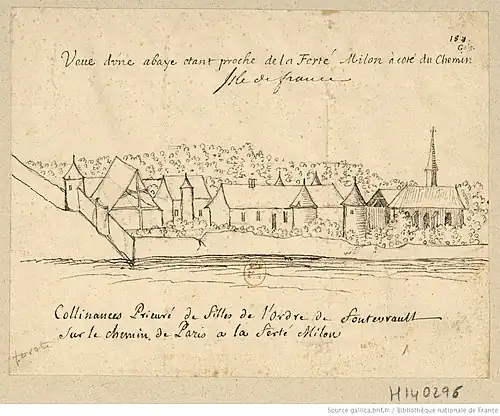 Veue d'vne abaye etant proche de la Ferté Milon à coté du Chemin
Isle de france
Collinances Prieuré de filles de l'Ordre de Fontevrault
Sur le chemin, de Paris a la ferté Milon
H140296
Source gallica.bnf.fr / Bibliothèque nationale de France